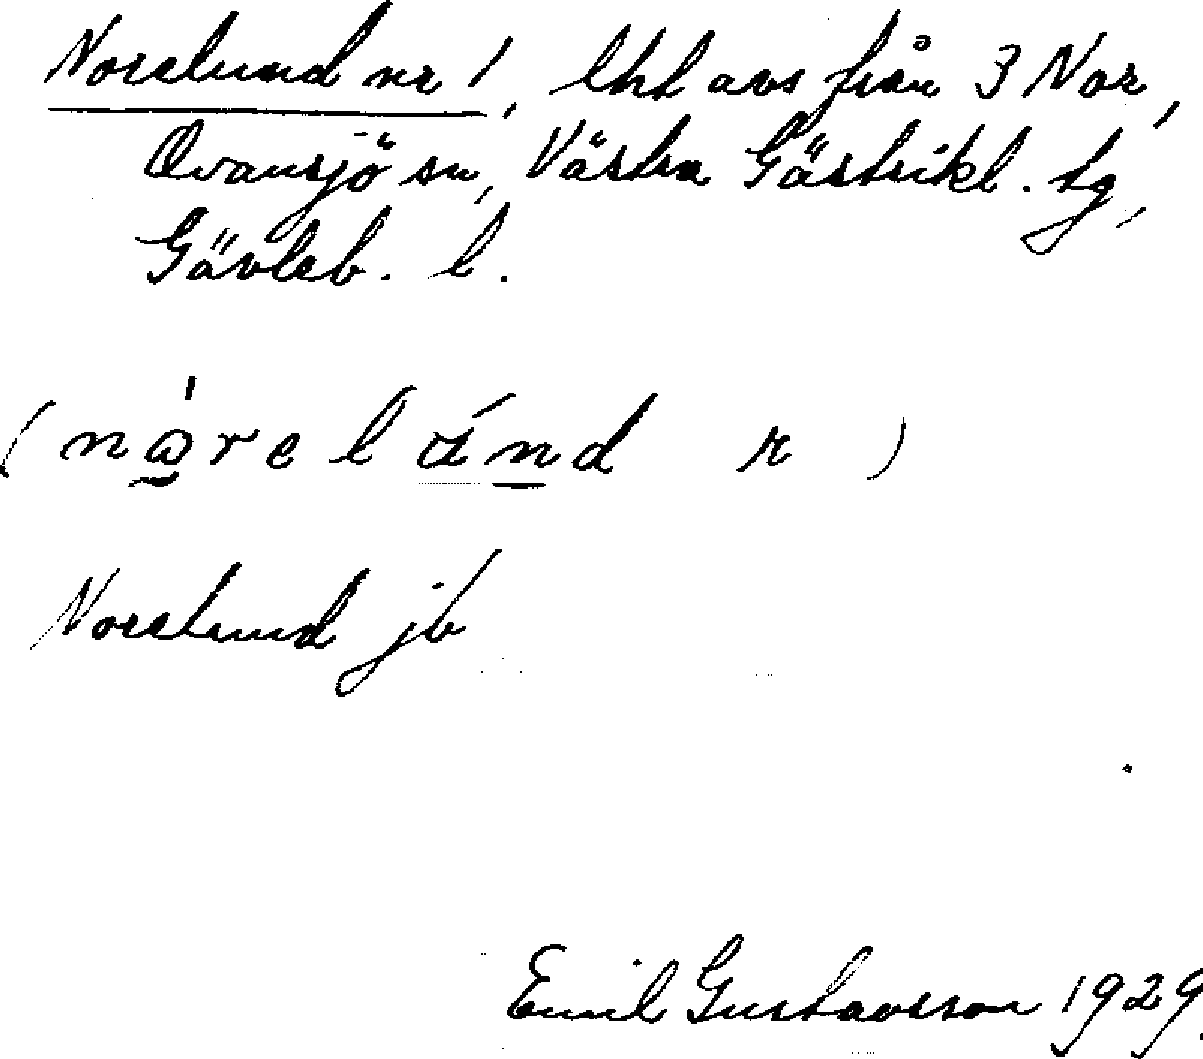 Norelund nr 1, lht avs från 3 Nor,
Ovansjö sn, Västra Gästrikl. tg,
Gävleb. l.
Norelund jb
Emil Gustavsson 1929